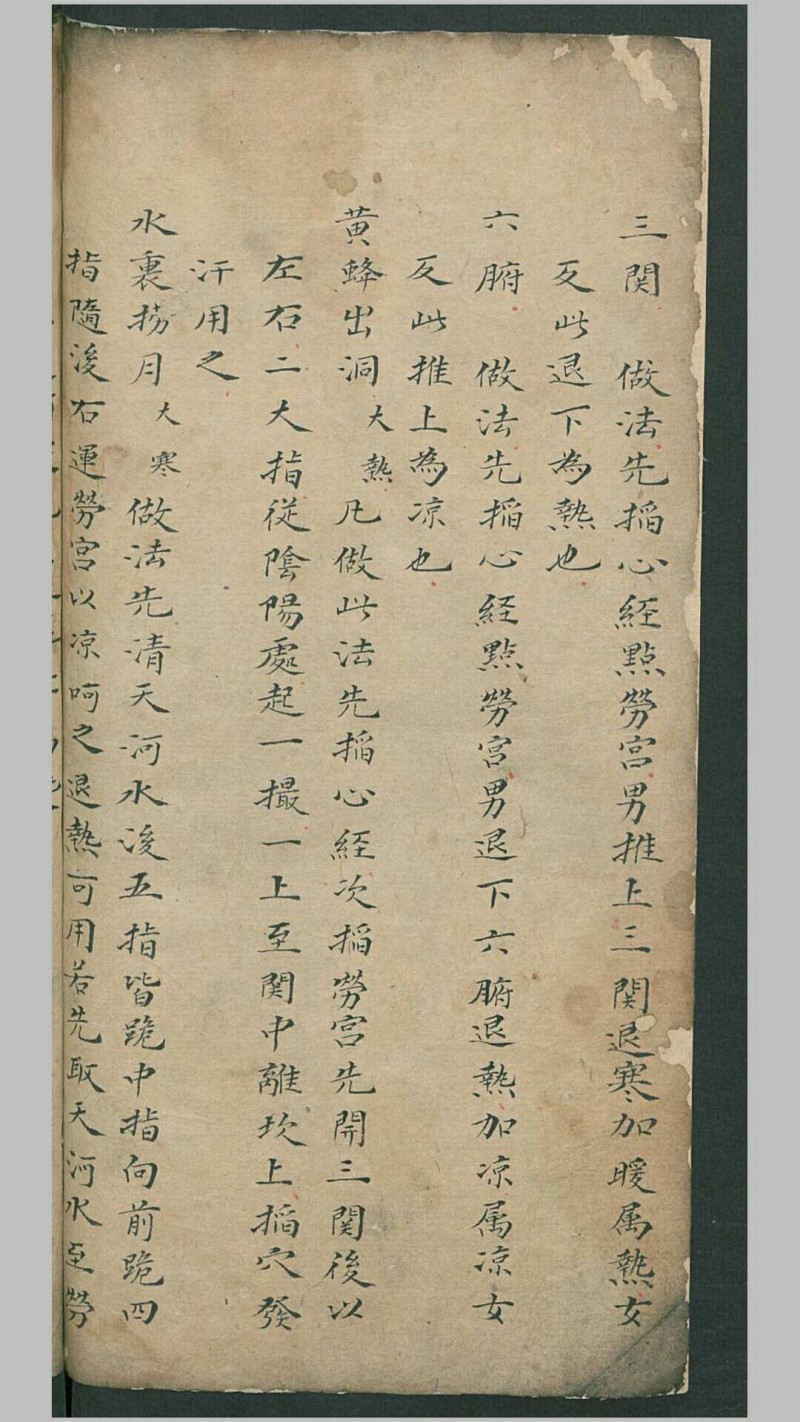 三関　做法先掐心経點勞宮男推上三関退寒加暖属熱女
反此退下為熱也
六腑　做法先掐心経點勞宮男退下六腑退熱加凉属凉女
反此推上為凉也
黄蜂出洞大熱凡做此法先掐心経次掐勞宮先開三関後以
左右二大指従陰陽處起一撮一上至関中離坎上掐穴發
汗用之
水裏撈月大寒做法先清天河水後五指皆跪中指向前跪四
指隨後右運勞宮以凉呵之退熱可用若先取天河水至勞